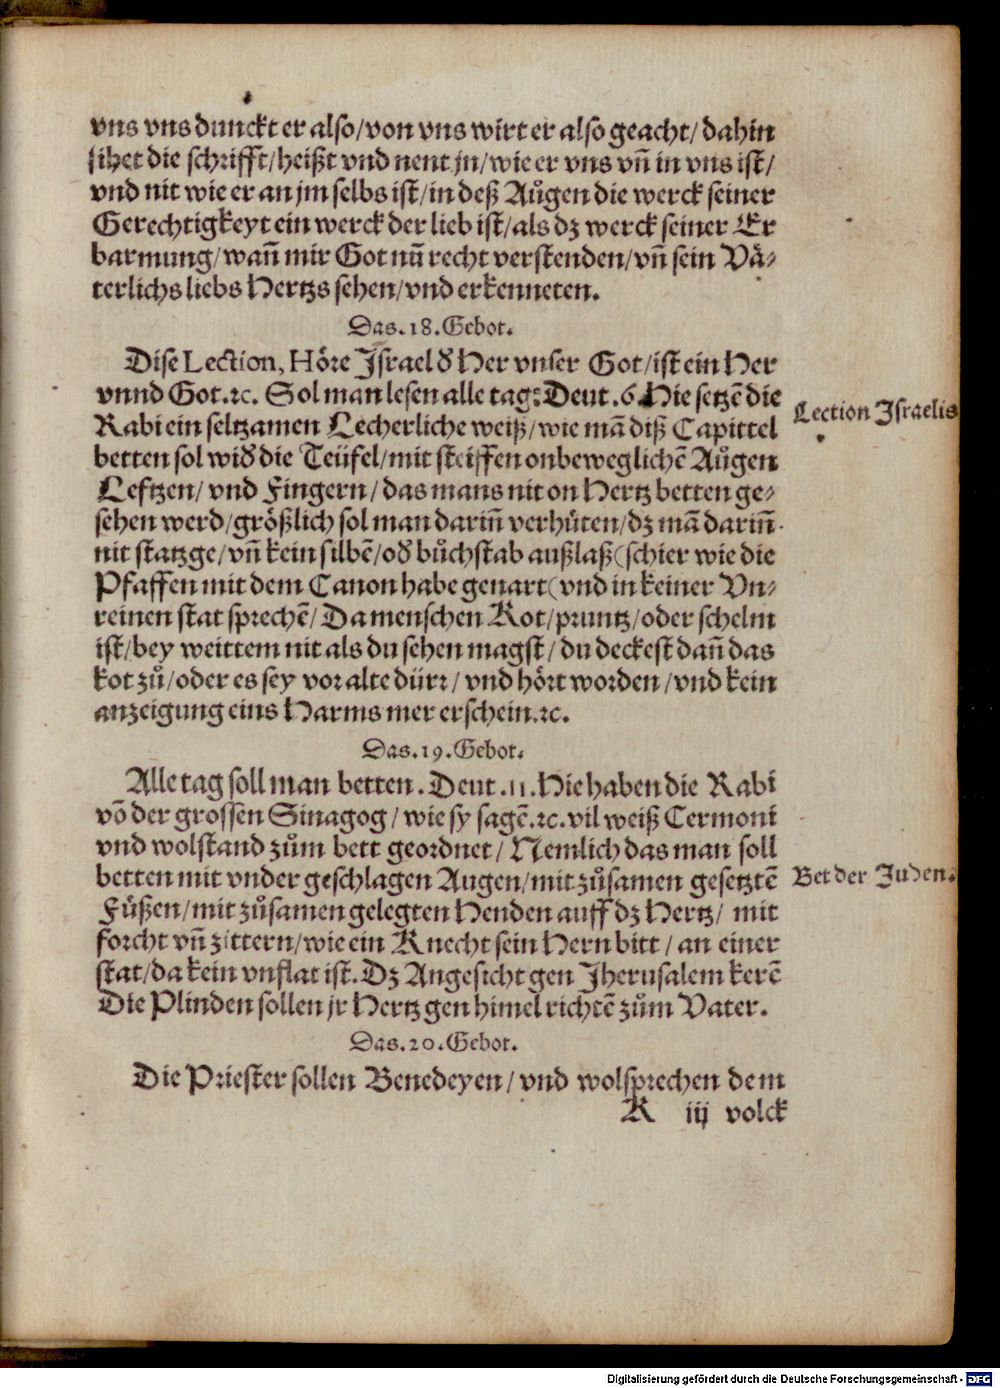 vns vns dunckt er also/von vns wirt er also geacht/dahin
sihet die schrifft/heißt vnd nent jn/wie er vns vñ in vns ist/
vnd nit wie er an jm selbs ist/in deß Aůgen die werck seiner
Gerechtigkeyt ein werck der lieb ist/als dz werck seiner Er
barmung/wañ mir Got nũ recht verstenden/vñ sein Vä⸗
terlichs liebs Hertzs sehen/vnd erkenneten.
Das.18.Gebot.
Dise Lection, Höre Jsrael ď Her vnser Got/ist ein Her
vnnd Got.ꝛc. Sol man lesen alle tag:Deut.6 Hie setzẽ die
Rabi ein seltzamen Lecherliche weiß/wie mã diß Capittel
Lection Israelis
betten sol wiď die Teüfel/mit steiffen onbeweglichẽ Aůgen
Lefftzen/vnd Fingern/das mans nit on Hertz betten ge⸗
sehen werd/größlich sol man dariñ verhüten/dz mã dariñ
nit statzge/vñ kein silbẽ/oď bůchstab außlaß(schier wie die
Pfaffen mit dem Canon habe genart(vnd in keiner Vn⸗
reinen stat sprechẽ/Da menschen Kot/pruntz/oder schelm
ist/bey weittem nit als du sehen magst/du deckest dañ das
kot zů/oder es sey vor alte dürr/vnd hört worden/vnd kein
anzeigung eins Harms mer erschein.ꝛc.
Das.19.Gebot.
Alle tag soll man betten.Deut.11.Hie haben die Rabi
võ der grossen Sinagog/wie sy sagẽ.ꝛc.vil weiß Cermoni
vnd wolstand zům bett geordnet/Nemlich das man soll
betten mit vnder geschlagen Augen/mit zůsamen gesetztẽ
Bet der Juden.
Füßen/mit zůsamen gelegten Henden auff dz Hertz/ mit
forcht vñ zittern/wie ein Knecht sein Hern bitt/an einer
stat/da kein vnflat ist.Dz Angesicht gen Jherusalem kerẽ
Die Plinden sollen jr Hertz gen himel richtẽ zům Vater.
Das.20.Gebot.
Die Priester sollen Benedeyen/vnd wolsprechen dem
K iij volck
Digitalisierung gefördert durch die Deutsche Forschungsgemeinschaft - DFG